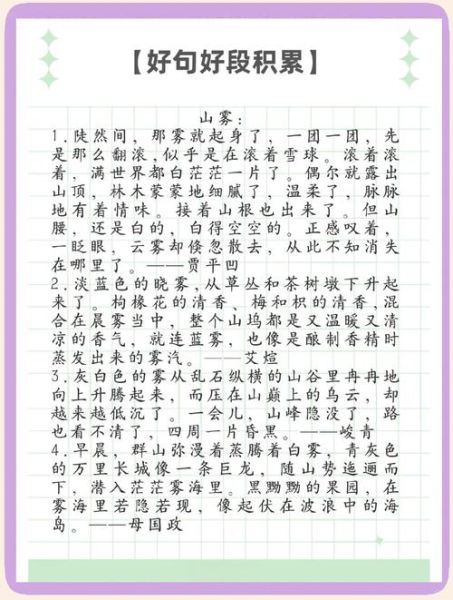 【好句好段积累】
山雾：
1.陡然间，那雾就起身了，一团一团，先
是那么翻滚，似乎是在滚着雪球。滚着滚
着，满世界都白茫茫一片了。偶尔就露出
山顶，林木蒙蒙地细腻了，温柔了，脉脉
地有着情味。接着山根也出来了。但山
腰，还是白的，白得空空的。正感叹着，
一眨眼，云雾却倏忽散去，从此不知消失
在哪里了。——贾平凹
2.淡蓝色的晓雾，从草丛和茶树墩下升起
来了。枸橼花的清香、梅和枳的清香，混
合在晨雾当中，整个山坞都是又温暖又清
凉的香气，就连蓝雾，也像是酿制香精时
蒸发出来的雾汽。——艾煊
3.灰白色的雾从乱石纵横的山谷里冉冉地
向上升腾起来，而压在山巅上的乌云，却
越来越低沉了。一会儿，山峰隐没了，路
也看不清了，四周一片昏黑。——峻青
4.早晨，群山弥漫着蒸腾着白雾，青灰色
的万里长城像一条巨龙，随山势迤逦而
下，潜入茫茫雾海里。黑黝黝的果园，在
雾海里若隐若现，像起伏在波浪中的海
岛。——母国政